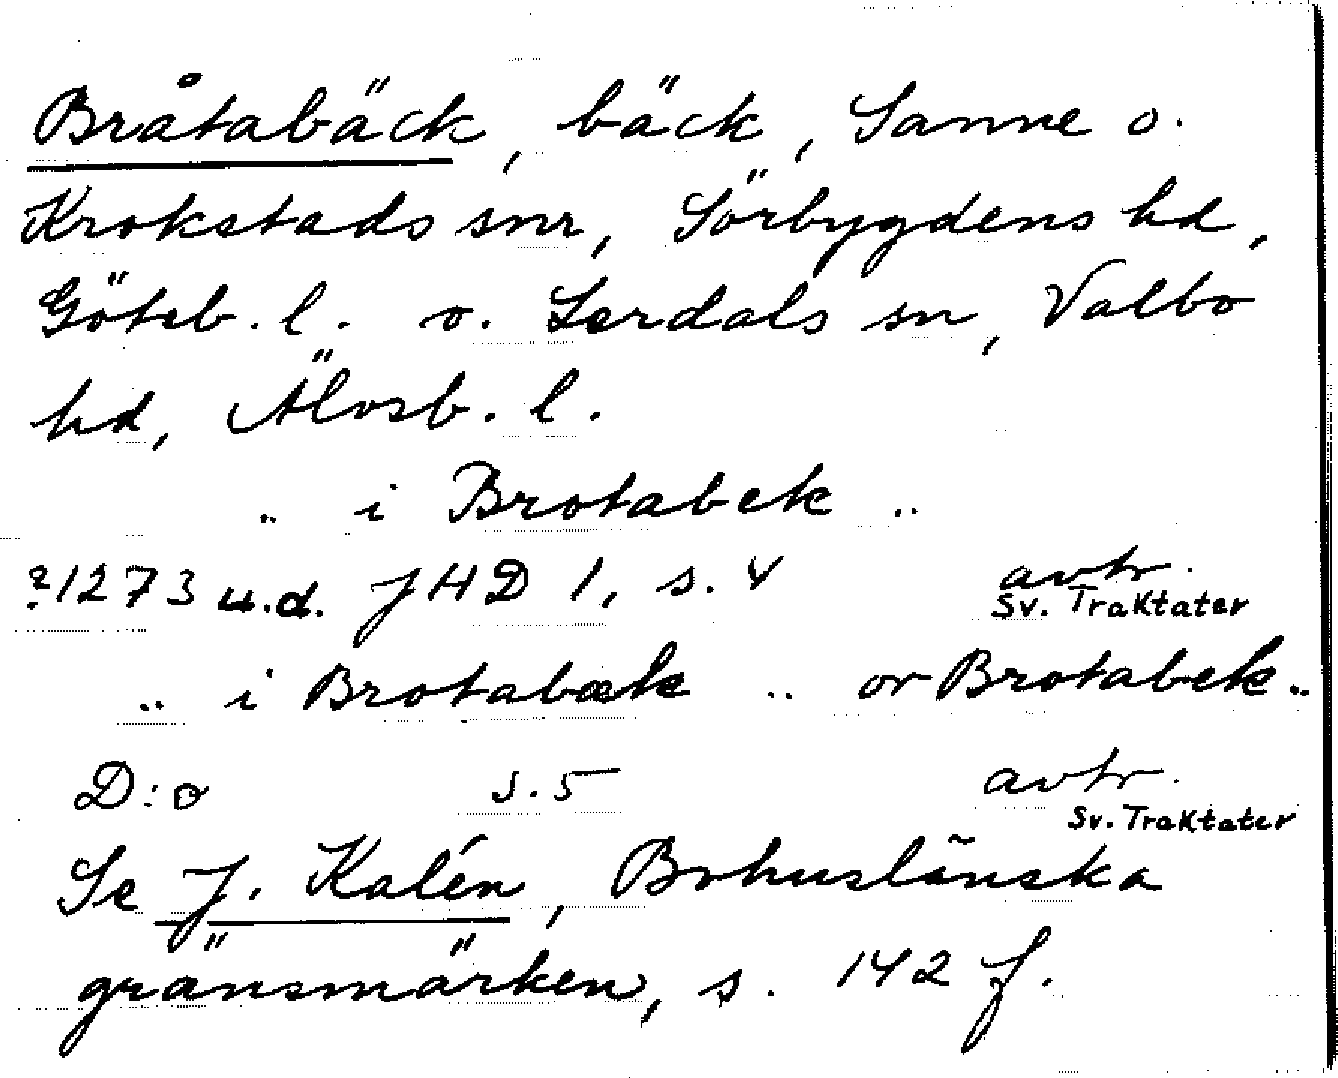 Bråtabäck, bäck, Sanne o.
Krokstads snr, Sörbygdens hd,
Göteb. l. o. Lerdals sn, Valbo
hd, Älvsb. l.
.. i Brotabek ..
?1273 u.d. JHD 1, s. 4 avtr.
Sv. Traktater
.. i Brotabæk .. or Brotabek..
D:o s. 5 avtr.
Sv. Traktater
Se J. Kalén, Bohuslänska
gränsmärken, s. 142 f.